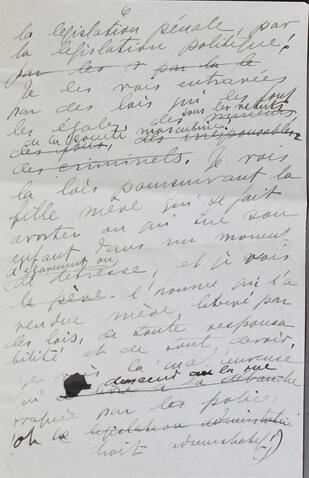 6
la législation pénale, par
la législation politique.
par les par la le
Je les vois entravées
par des lois qui les font
les égales des
tous les rebuts
de la société masculine,
des fous, des irresponsables
des criminels. Je vois
la loi poursuivant la
fille mère qui se fait
avorter ou qui tue son
enfant dans un moment
d'égarement ou
de détresse, et je vois
le père - l'homme qui l'a
rendue mère, libéré par
les lois, de toute responsa
bilité et de tout devoir,
je vois la malheureuse
qui descend dans la rue
à la débauche
par les police,
oh la législation administra